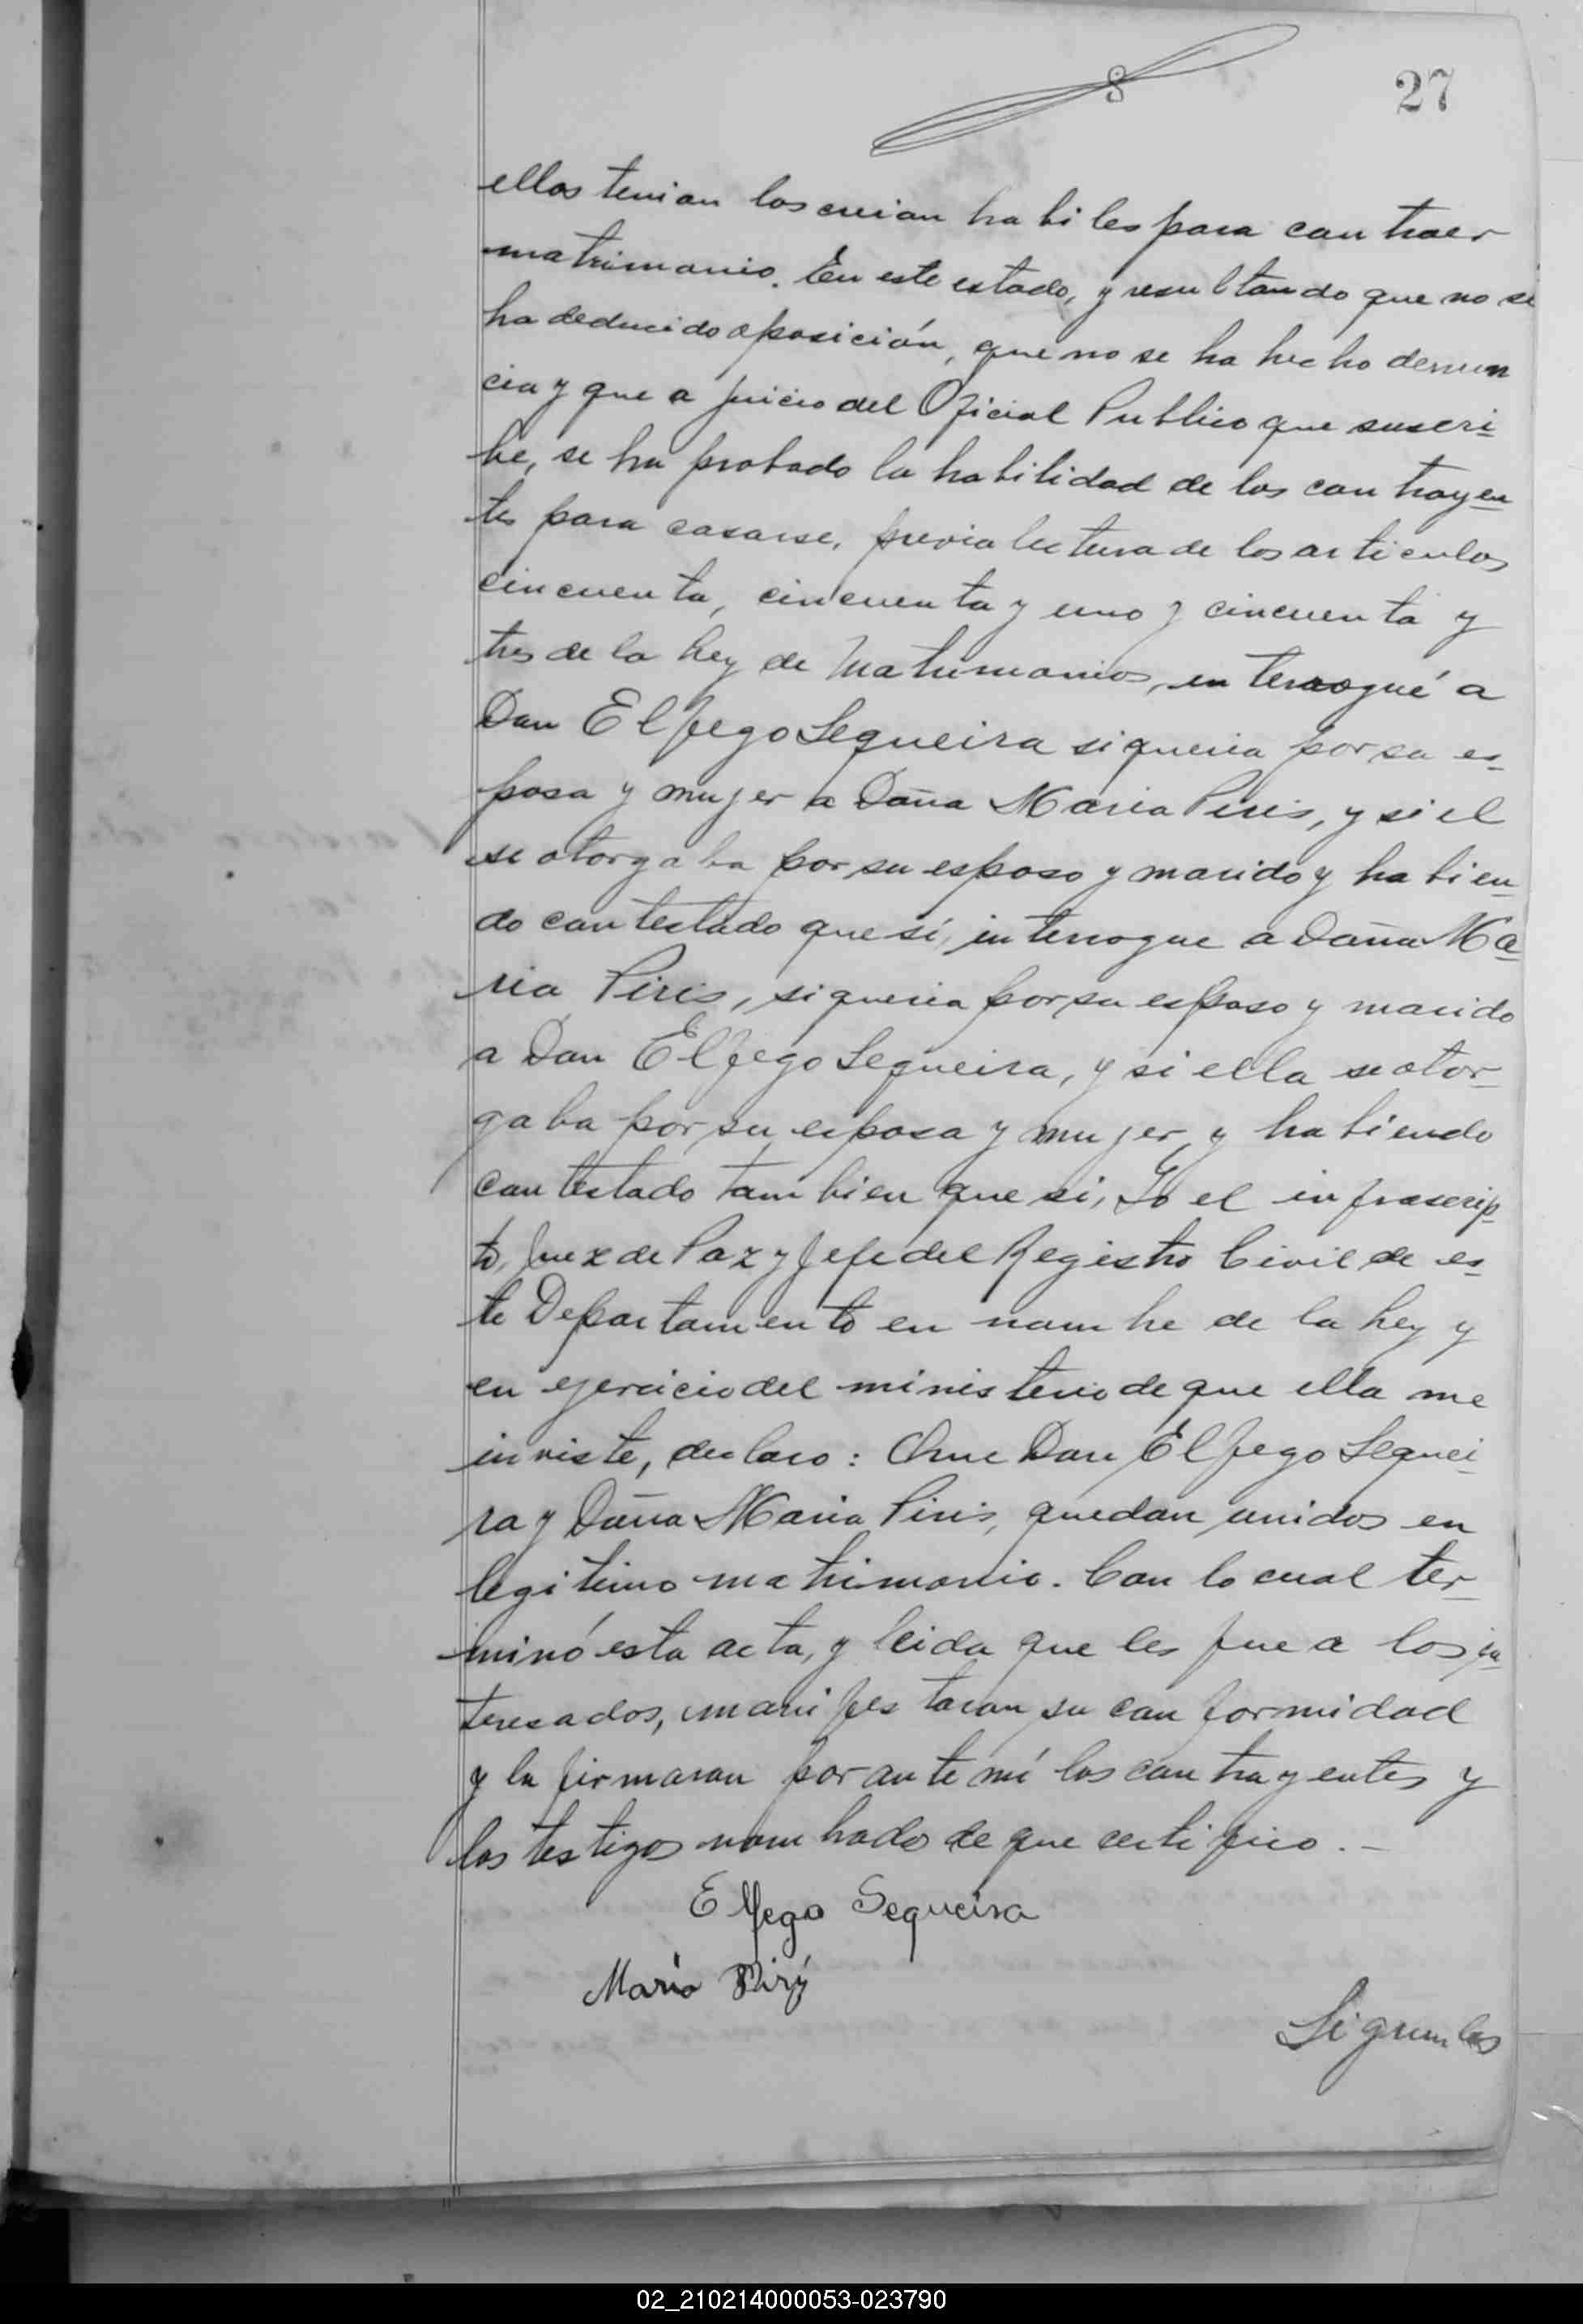 8
27
ellos tenian los creian habiles para contraer
matrimonio. En este estado, y resultando que no se
ha deducido oposición, que no se ha hecho denun
cia y que a juicio del Oficial Publico que suscri-
be, se ha probado la habilidad de los contrayen
tes para casarse, previa lectura de los articulos
cincuenta, cincuenta y uno y cincuenta y
tres de la Ley de Matrimonios, interrogué a
Don Elfego Sequeira si queria por su es-
posa y mujer a Doña Maria Piris, y si el
se otorgaba por su esposo y marido y habien
do contestado que si, interrogue a Doña Ma
ria Piris, si queria por su esposo y marido
a Don Elfego Sequeira, y si ella se otor-
gaba por su esposa y mujer, y habiendo
contestado tambien que si, Yo el infrascrip
to, Juez de Paz y Jefe del Registro Civil de es-
te Departamento en nombre de la Ley y
en ejercicio del ministerio de que ella me
inviste, declaro: Que Don Elfego Sequei-
ra y Doña Maria Piris, quedan unidos en
legitimo matrimonio. Con lo cual ter-
minó esta acta, y leida que les fue a los in
teresados, manifestaron su conformidad
y la firmaron por ante mí los contrayentes y
los testigos nombrados de que certifico.-
Elfego Sequeira
Maria
Siguen las
02_210214000053-023790